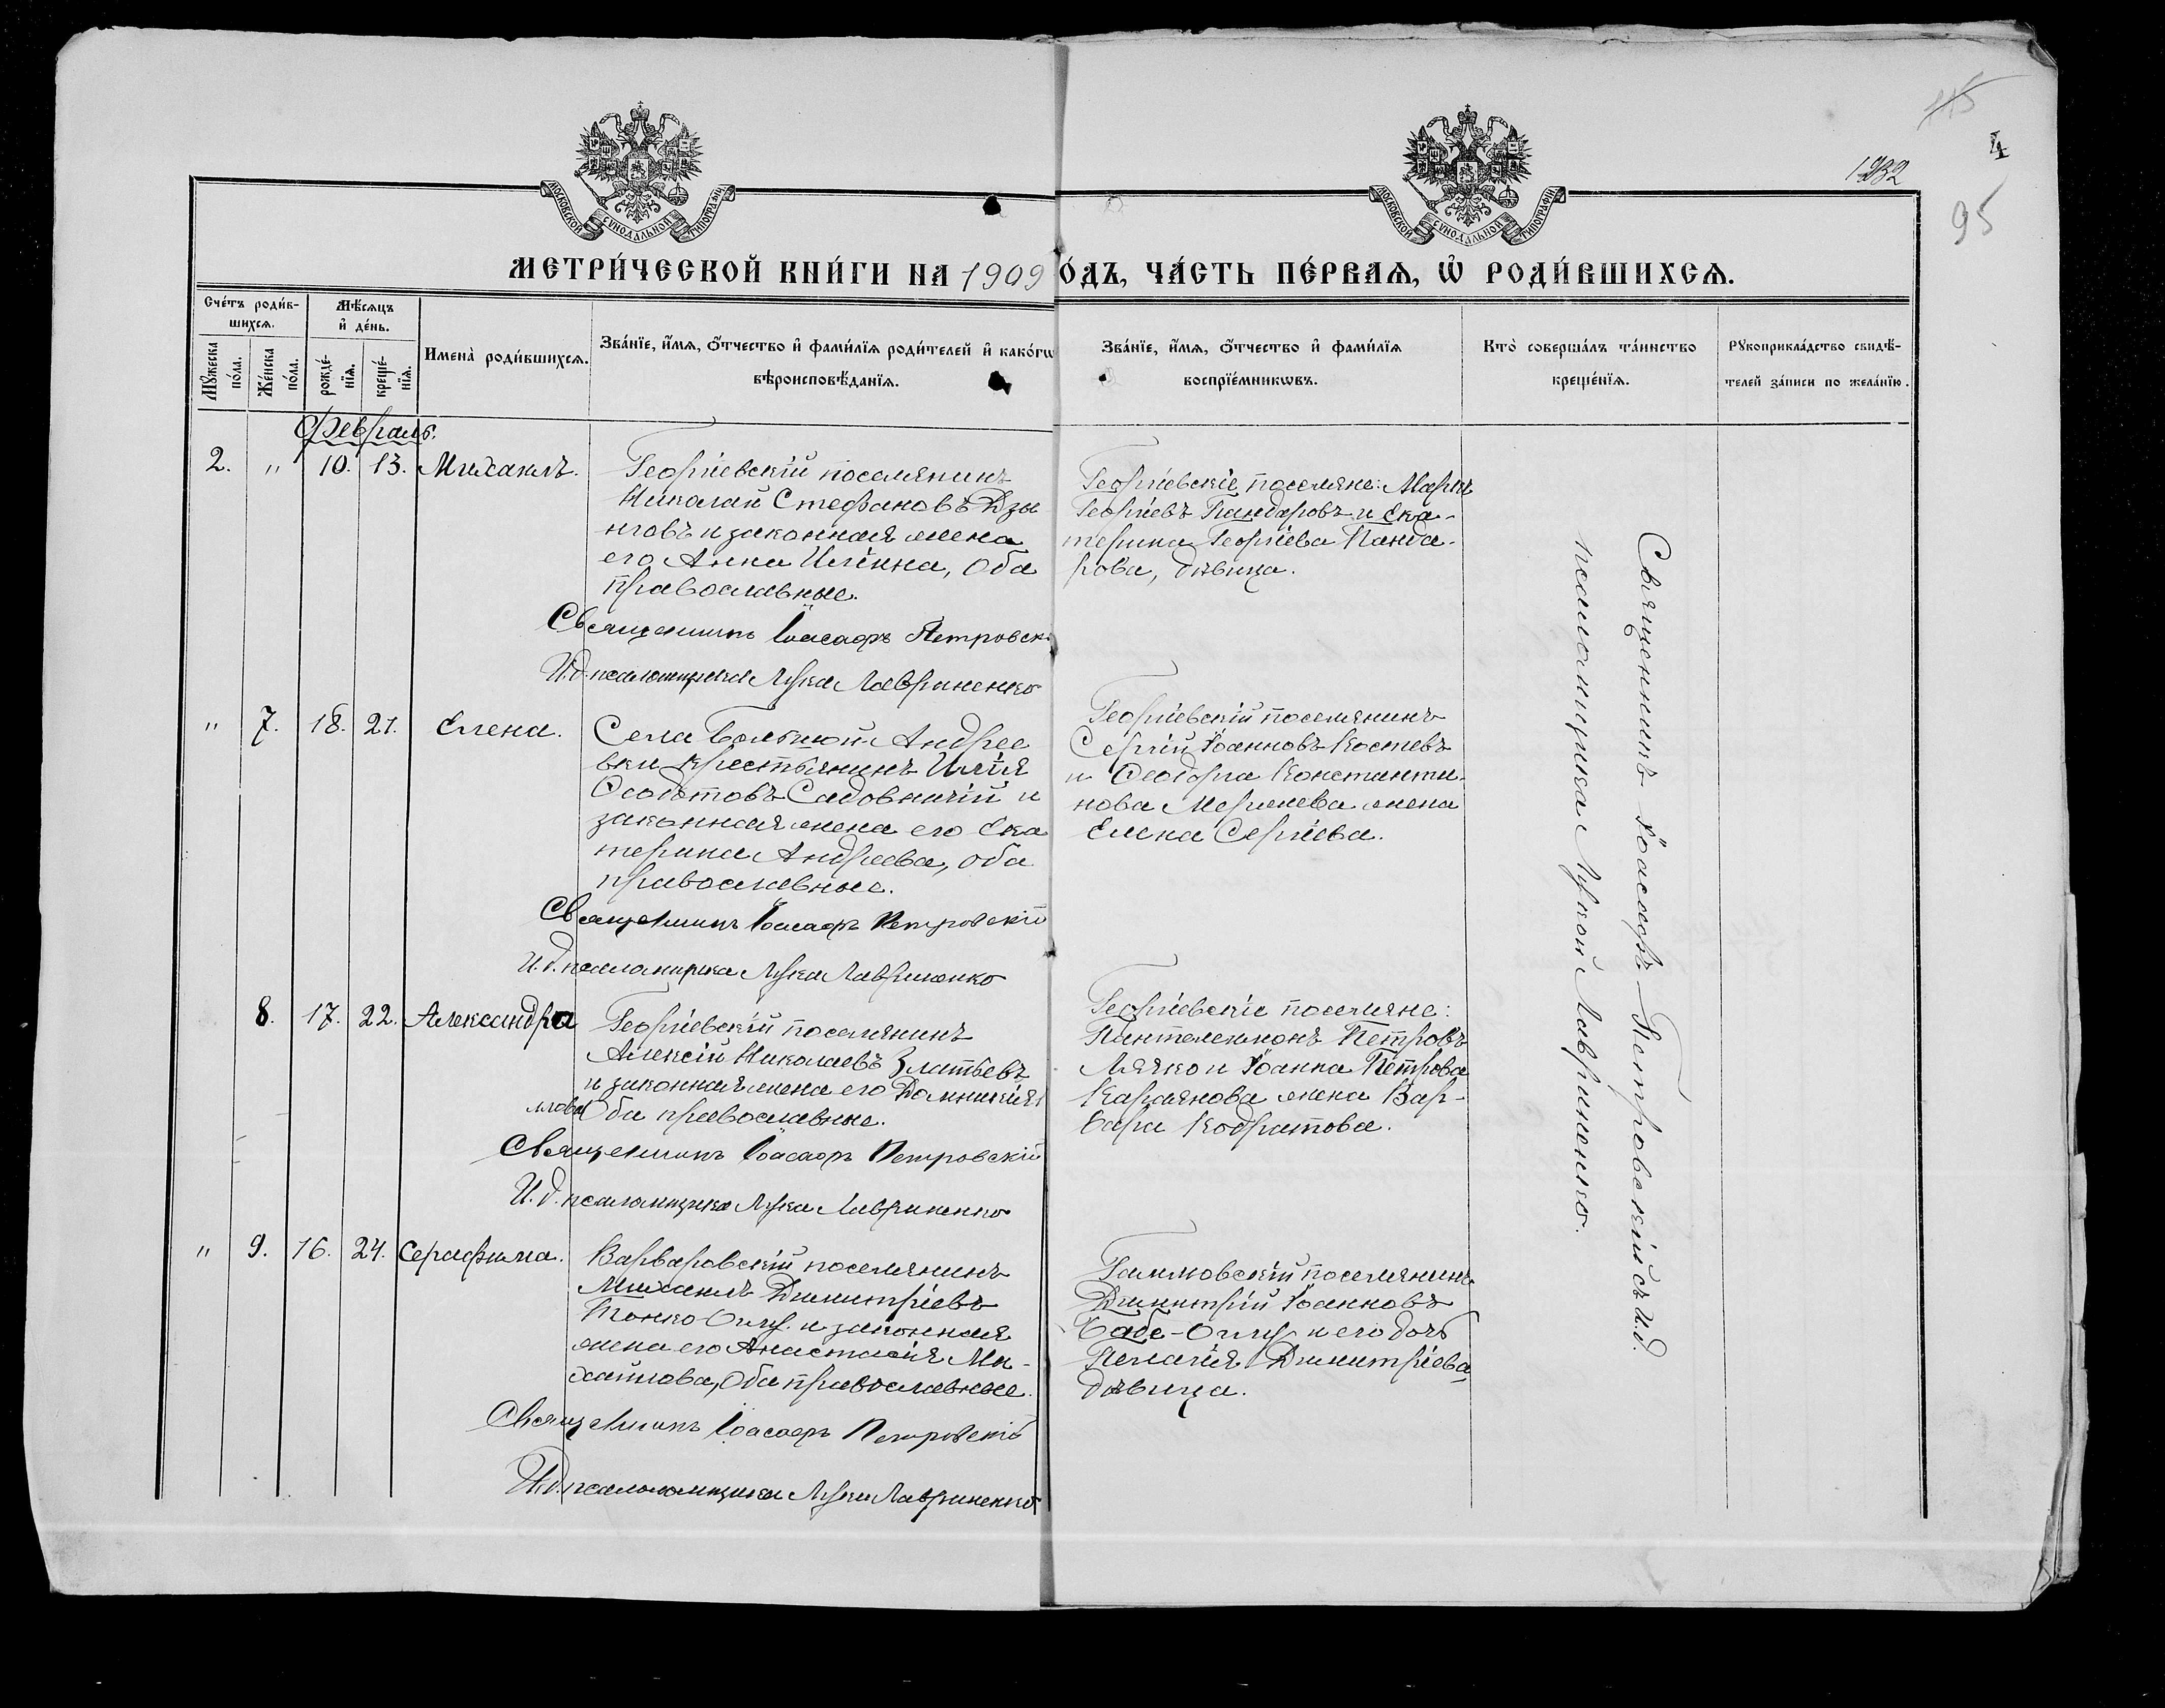 115
4
1332
95
МОСКОВСКОЙ СѴНОДАЛЬНОЙ ТИПОГРАФІИ
МОСКОВСКОЙ СѴНОДАЛЬНОЙ ТИПОГРАФІИ
МЕТРИ́ЧЕСКОЙ КНИ́ГИ НА 1909 О́ДЪ, ЧА́СТЬ ПЕ́РВАѦ, Ѡ҆ РОДИ́ВШИХСѦ.
Сче́тъ роди́в-
шихсѧ.
Мꙋ́жеска по́ла.
Же́нска по́ла.
Мѣ́сѧцъ
и҆ де́нь.
рожде́-
нїѧ.
креще́-
нїѧ.
Имена̀ роди́вшихсѧ.
Зва́нїе, и҆́мѧ, ѻ҆́тчество и҆ фами́лїѧ роди́телей и҆ како́гѡ
вѣроисповѣ́данїѧ.
Зва́нїе, и҆́мѧ, ѻ҆́тчество и҆ фами́лїѧ
воспрїе́мникѡвъ.
Кто̀ соверша́лъ та́инство
креще́нїѧ.
Рꙋкоприкла́дство свидѣ́-
телей за́писи по жела́нїю.
Февраль.
2. " 10. 13. Михаилъ.
Георгіевскій поселянинъ
Николай Стефановъ Дзы
нговъ и законная жена
его Анна Иліина, оба
православные.
Священникъ Іоасафъ Петровск
И.д. псаломщика Лука Лавриненко
Георгіевскіе поселяне: Маркъ
Георгіевъ Пандаровъ и Ека-
терина Георгіева Панда-
рова, дѣвица.
" 7. 18. 21. Елена.
Села Большой Андрее
вки крестьянинъ Илія
Ѳеодотовъ Садовничій и
законная жена его Ека
терина Андреева, оба
православные.
Священникъ Іоасафъ Петровскій
И.д. псаломщика Лука Лавриненко
Георгіевскій поселянинъ
Сергій Іоанновъ Костевъ
и Ѳеодора Константи-
нова жена
Елена Сергіева.
8. 17. 22. Александра
Георгіевскій поселянинъ
Алексій Николаевъ Златьевъ
и законная жена его Домникія
Оба православные.
Священникъ Іоасафъ Петровскій
И.д. псаломщика Лука Лавриненко
Георгіевскіе поселяне:
Пантелеимонъ Петровъ
Лячко и Іоанна Петрова
жена Вар-
вара Кодратова.
" 9. 16. 24. Серафима.
Варваровскій поселянинъ
Михаилъ Димитріевъ
Тонко-Оглу и законная
жена его Анастасія Ми-
хайлова, оба православные.
Священникъ Іоасафъ Петровскій
И.д. псаломщика Лука Лавриненко
поселянинъ
Димитрій Іоанновъ
Баба-Оглу и его дочь
Пелагія Димитріева
дѣвица.
Священникъ Іоасафъ Петровскій съ и.д.
псаломщика Лукой Лавриненко.